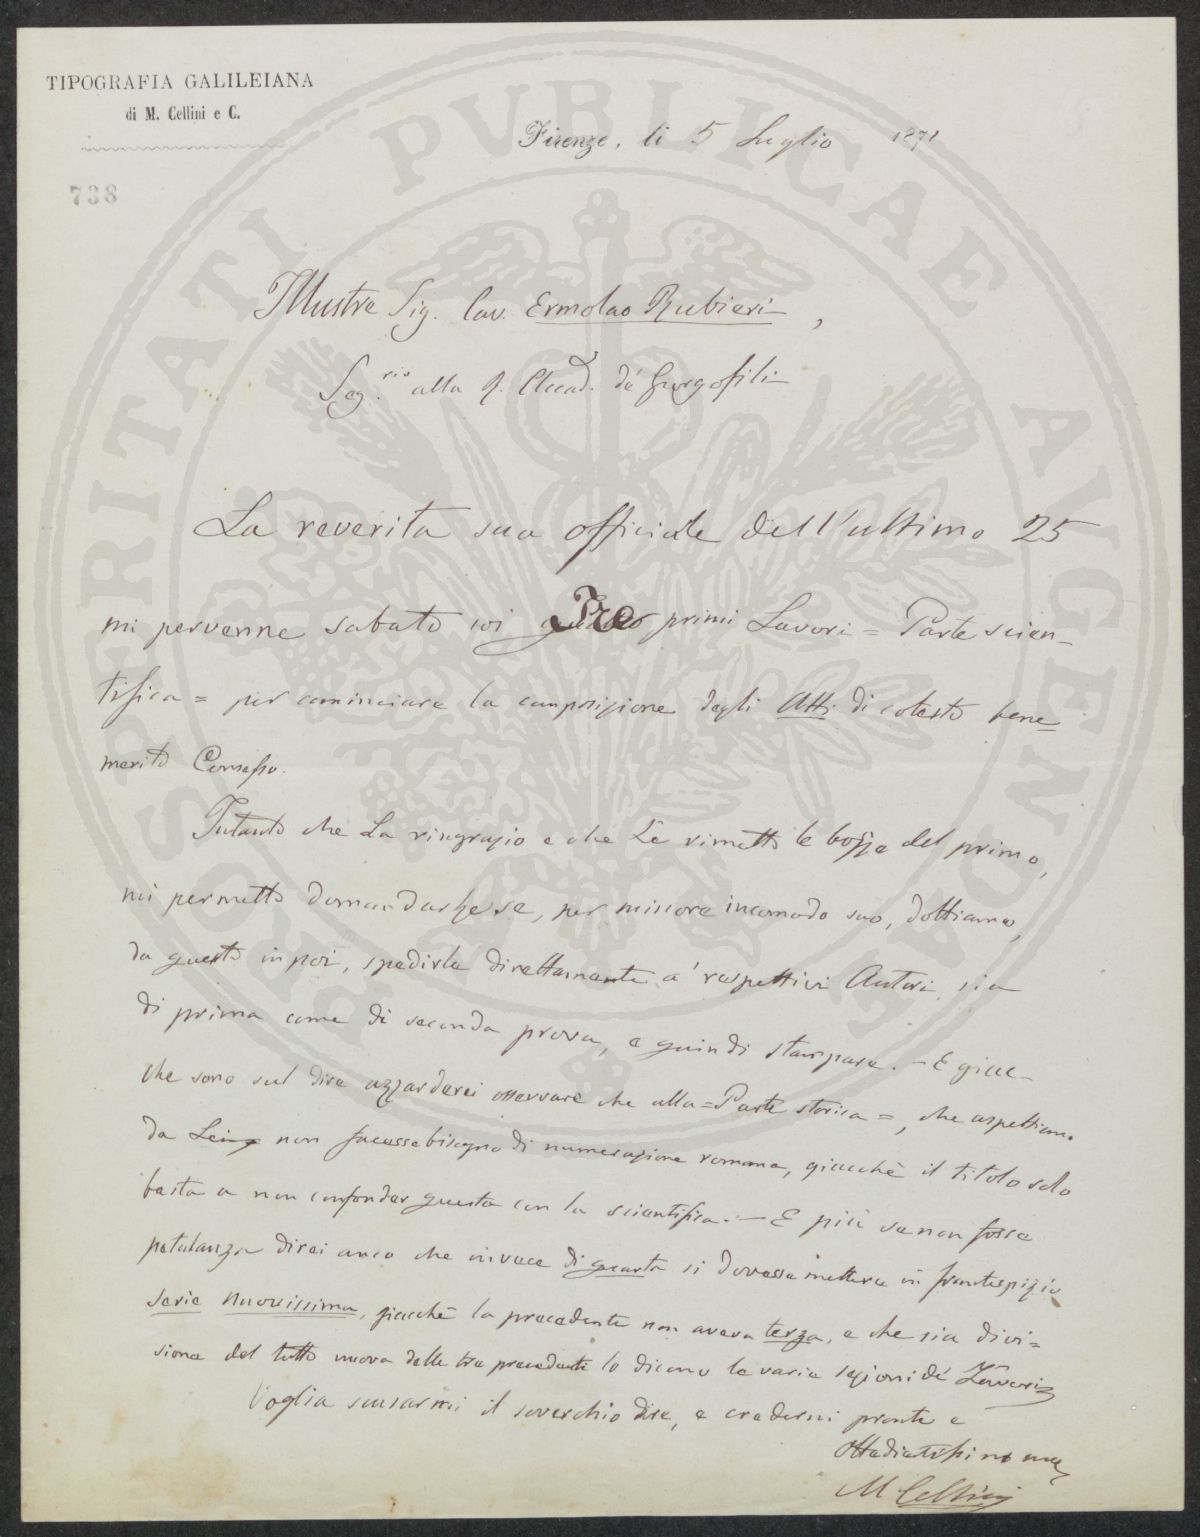 TIPOGRAFIA GALILEIANA
di M. Cellini e C.
Firenze, li 5 Luglio 1871
738
PROSPERITATI PVBLICAE AVGENDAE
Illustre Sig. Cav. Ermolao Rubieri,
Seg.rio alla R. Accad. de' Georgofili
La reverita sua officiale dell'ultimo 25
mi pervenne sabato coi Tre primi Lavori = Parte scien-
tifica = per cominciare la composizione degli Atti di cotesto bene=
merito Consesso.
Intanto che La ringrazio e che Le rimetto le bozze del primo,
mi permetto domandarle se, per minore incomodo suo, dobbiamo,
da questo in poi, spedirle direttamente a' respettivi Autori, sia
di prima come di seconda prova, e quindi stampare. — E giac-
che sono sul dire azzarderei osservare che alla = Parte storica =, che aspettiamo
da Lei, non facesse bisogno di numerazione romana, giacchè il titolo solo
basta a non confonder questa con la scientifica. — E più se non fosse
petulanza direi anco che invece di quarta si dovesse mettere in frontespizio
serie nuovissima, giacchè la precedente non aveva terza, e che sia divi=
sione del tutto nuova dalle tre precedenti lo dicono le varie sezioni de' Lavori
Voglia scusarmi il soverchio dire, e credermi pronto e
Obbedientissimo
M Cellini